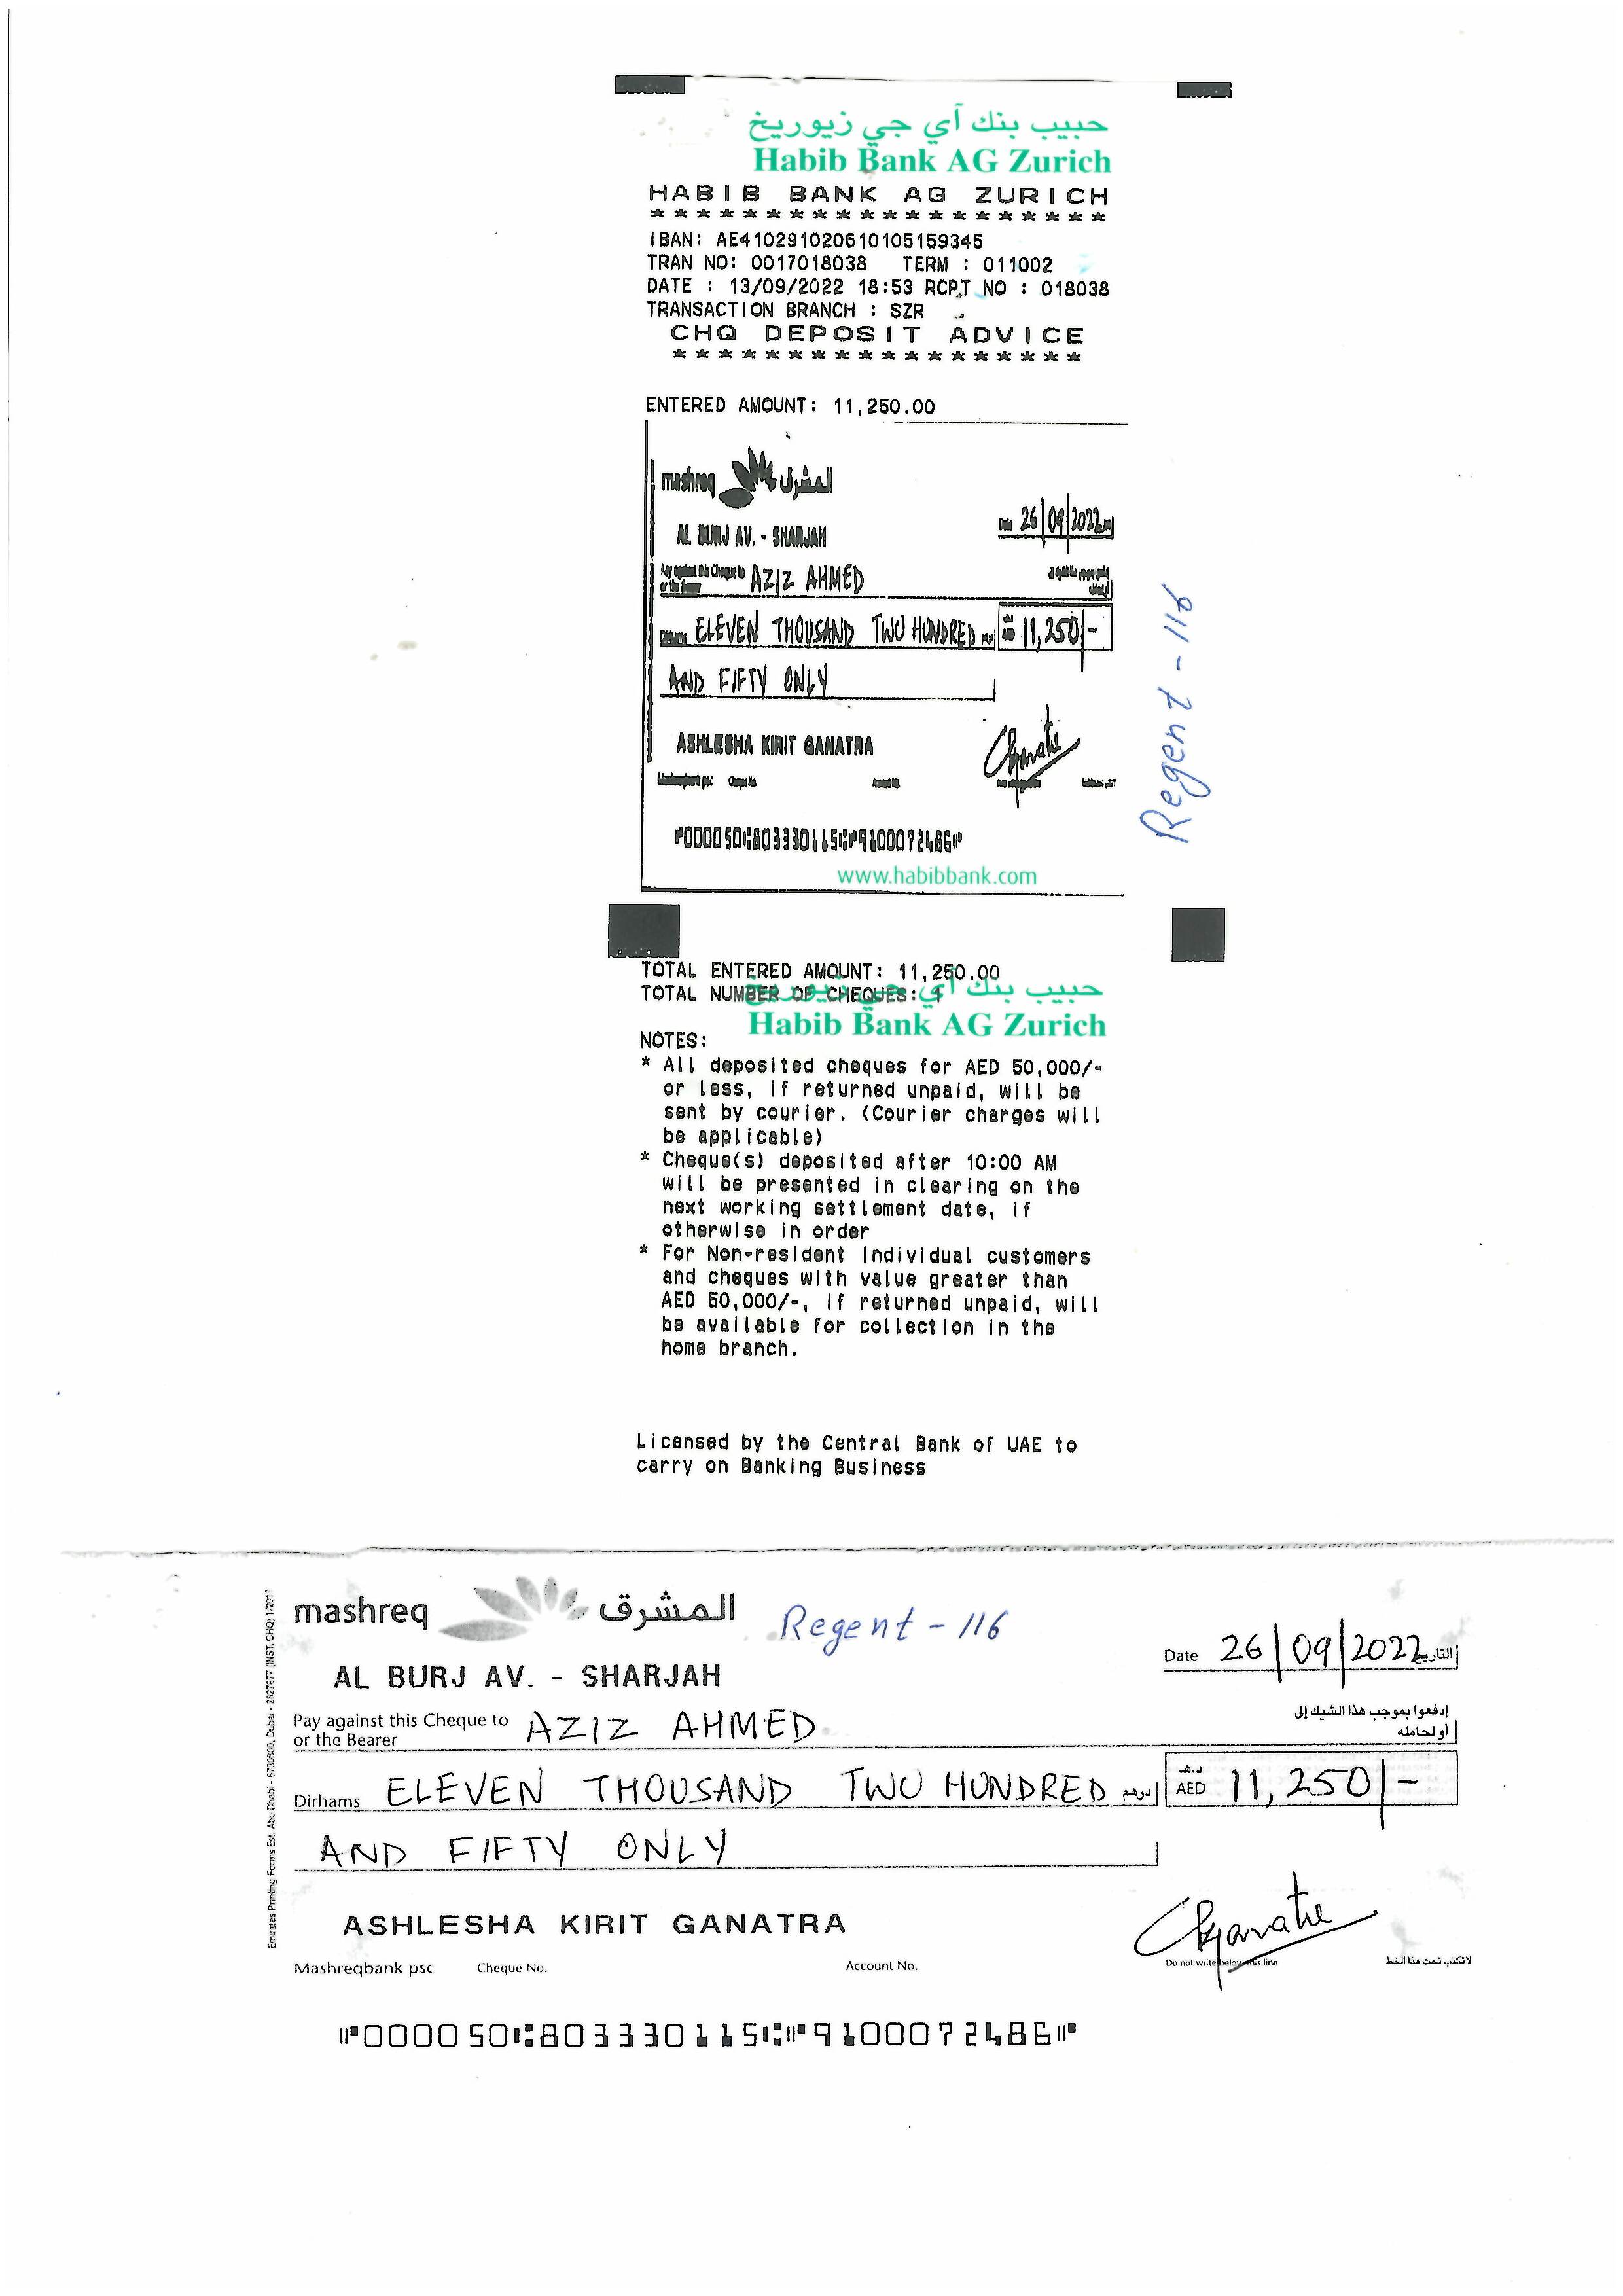 حبيب بنك آي جي زيوريخ
Habib Bank AG Zurich
HABIB BANK AG ZURICH
********************
IBAN: AE410291020610105159345
TRAN NO: 0017018038 TERM : 011002
DATE : 13/09/2022 18:53 RCPT NO : 018038
TRANSACTION BRANCH : SZR
CHQ DEPOSIT ADVICE
******************
ENTERED AMOUNT: 11,250.00
mashreq المشرق
AL BURJ AV. - SHARJAH
Date 26/09/2022
Pay against this Cheque to AZIZ AHMED
or the Bearer
Dirhams ELEVEN THOUSAND TWO HUNDRED درهم 11,250/-
AND FIFTY ONLY
ASHLESHA KIRIT GANATRA
Mashreqbank psc Cheque No. Account No.
⑈000050⑆803330115⑆⑈9100072486⑈
www.habibbank.com
Regent - 116
TOTAL ENTERED AMOUNT: 11,250.00
TOTAL NUMBER OF CHEQUES: 1
حبيب بنك آي جي زيوريخ
Habib Bank AG Zurich
NOTES:
* All deposited cheques for AED 50,000/-
or less, if returned unpaid, will be
sent by courier. (Courier charges will
be applicable)
* Cheque(s) deposited after 10:00 AM
will be presented in clearing on the
next working settlement date, if
otherwise in order
* For Non-resident Individual customers
and cheques with value greater than
AED 50,000/-, if returned unpaid, will
be available for collection in the
home branch.
Licensed by the Central Bank of UAE to
carry on Banking Business
mashreq المشرق
Regent - 116
Date 26/09/2022 التاريخ
AL BURJ AV. - SHARJAH
Pay against this Cheque to AZIZ AHMED إدفعوا بموجب هذا الشيك إلى
or the Bearer أو لحامله
Dirhams ELEVEN THOUSAND TWO HUNDRED درهم د.هـ AED 11,250/-
AND FIFTY ONLY
ASHLESHA KIRIT GANATRA
Mashreqbank psc Cheque No. Account No. Do not write below this line لا تكتب تحت هذا الخط
⑈000050⑆803330115⑆⑈9100072486⑈